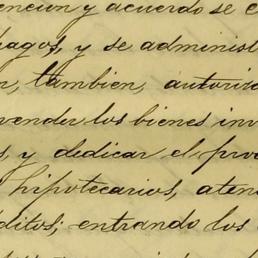 encion y acuerdo se e
hagos, y se administ
n, tambien, autoriz
vender los bienes inv
s y dedicar el pro
hipotecarios, aten
ditos, entrando los